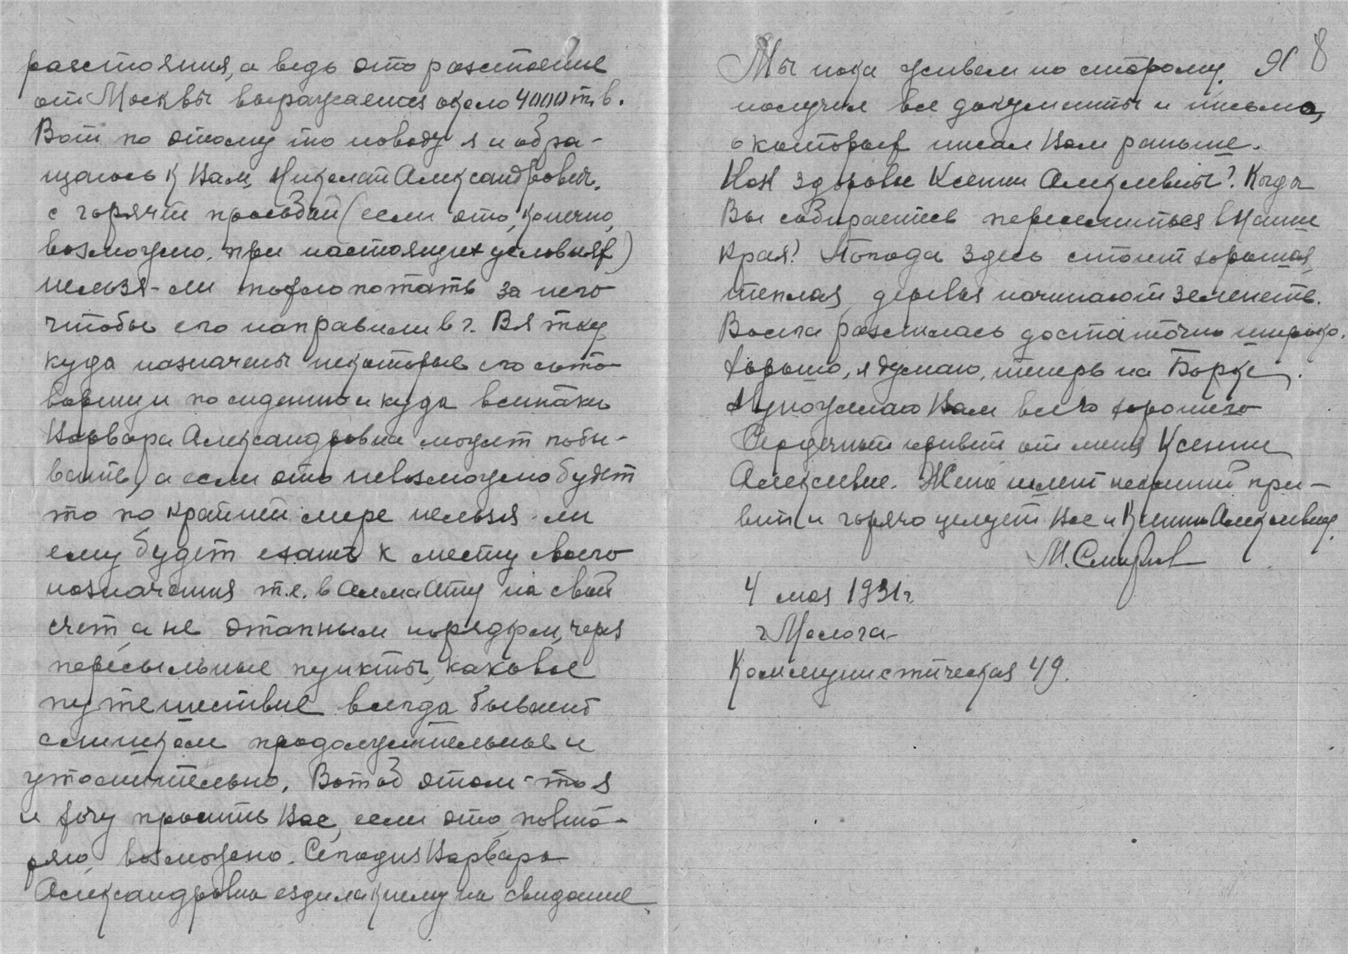 расстояния, а ведь это расстояние
от Москвы выражается около 4000 т. в.
Вот по этому то поводу я и обра-
щаюсь к Вам, Николай Александрович,
с горячей просьбой (если это, конечно,
возможно, при настоящих условиях)
нельзя-ли похлопотать за него
чтобы его направили в г. Вятку,
куда назначены некоторые его сото-
варищи по сидению и куда всетаки
Варвара Александровна может побы-
вать, а если это невозможно будет
то по крайней мере нельзя-ли
ему будет ехать к месту своего
назначения т.е. в Алма Ату на свой
счет а не этапным порядком, через
пересыльные пункты, каковое
путешествие всегда бывает
слишком продолжительное и
утомительно. Вот об этом-то я
и хочу просить Вас, если это, повто-
ряю возможно. Сегодня Варвара
Александровна ездила к нему на свидание
Мы пока живем по старому. Я 8
получил все документы и письма,
о которых писал Вам раньше.
Как здоровье Ксении Алексеевны? Когда
Вы собираетесь переселиться в наши
края? Погода здесь стоит хорошая,
теплая, деревья начинают зеленеть.
Волга разлилась достаточно широко.
Хорошо, я думаю, теперь на Борке.
Я пожелаю Вам всего хорошего
Сердечный привет от меня Ксении
Алексеевне. Жена шлет нежный при-
вет и горячо целует Вас и Ксению Алексеевну.
М. Смирнов
4 мая 1931 г.
г. Молога
Коммунистическая 49.